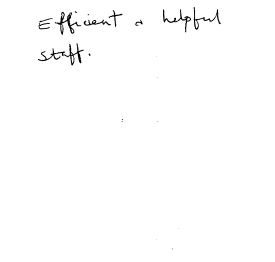 Efficient & helpful
staff.